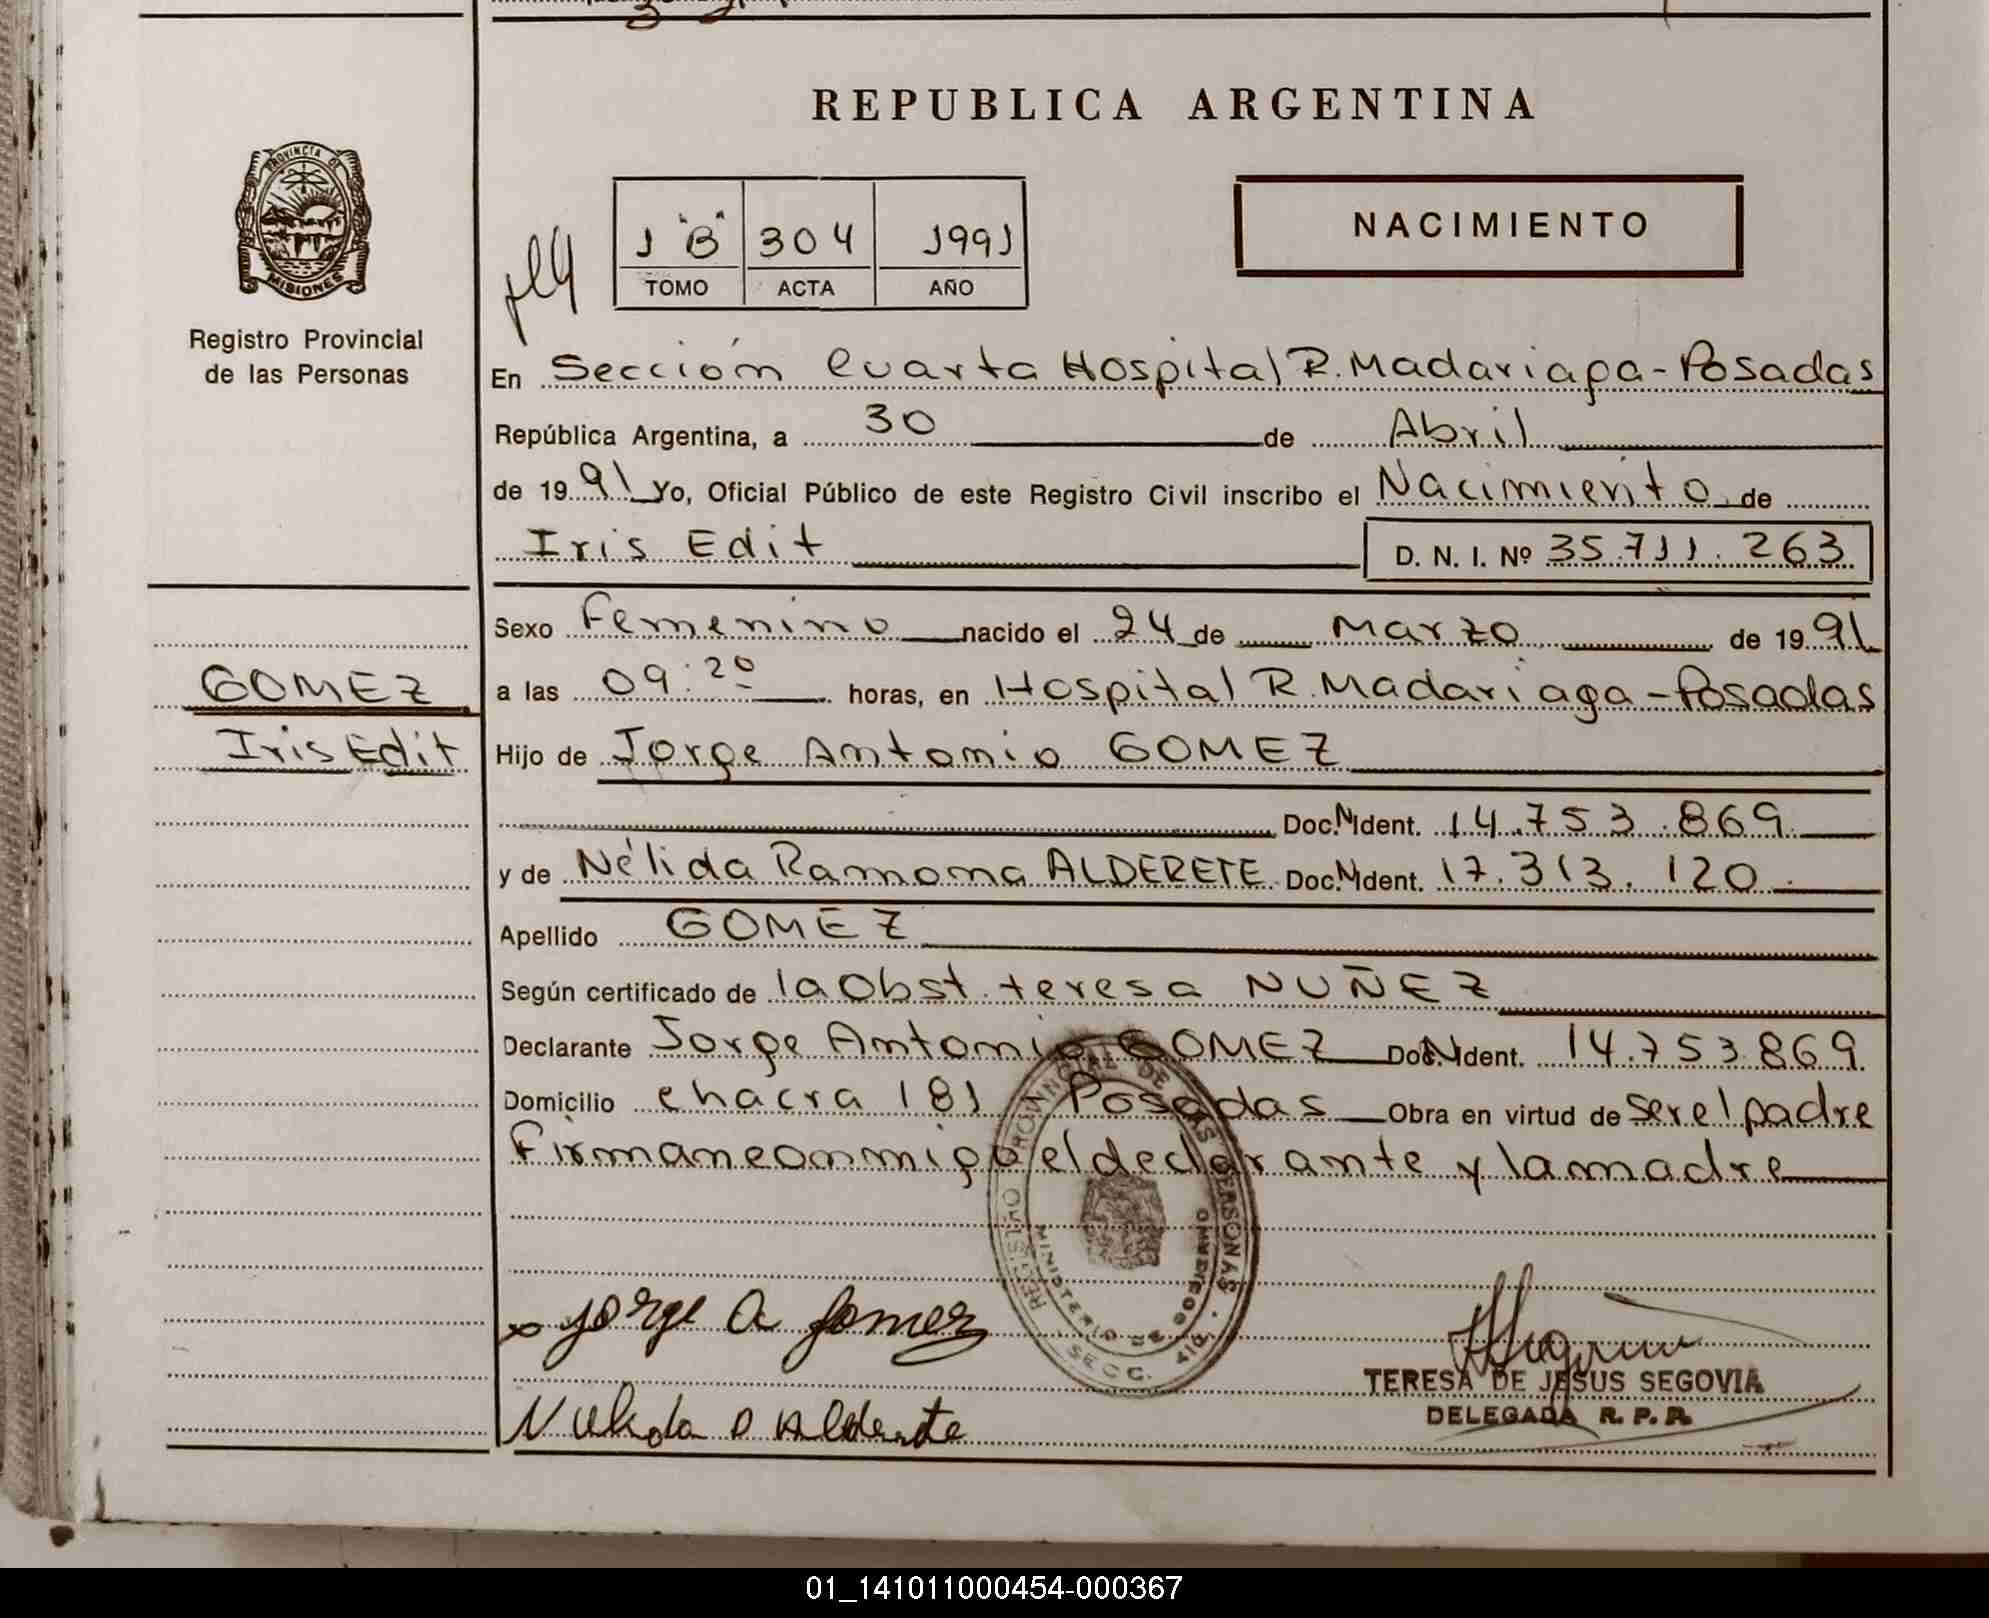 REPUBLICA ARGENTINA
PROVINCIA DE
MISIONES
Registro Provincial
de las Personas
NACIMIENTO
1 "B" 304 1991
TOMO ACTA AÑO
En Sección Cuarta Hospital R. Madariaga - Posadas
República Argentina, a 30 de Abril
de 1991 Yo, Oficial Público de este Registro Civil inscribo el Nacimiento de
Iris Edit D. N. I. Nº 35.711.263
Sexo Femenino nacido el 24 de Marzo de 1991
GOMEZ
Iris Edit
a las 09:20 horas, en Hospital R. Madariaga - Posadas
Hijo de Jorge Antonio GOMEZ
Doc. N Ident. 14.753.869
y de Nélida Ramona ALDERETE Doc. N Ident. 17.313.120
Apellido GOMEZ
Según certificado de la Obst. teresa NUÑEZ
Declarante Jorge Antonio GOMEZ Doc. N Ident. 14.753.869
Domicilio chacra 181 Posadas Obra en virtud de ser el padre
Firman conmigo el declarante y la madre
REGISTRO PROVINCIAL DE LAS PERSONAS
MINISTERIO DE GOBIERNO
SECC. 4ta.
Jorge A Gomez
TERESA DE JESUS SEGOVIA
DELEGADA R. P. P.
Alderete
01_141011000454-000367